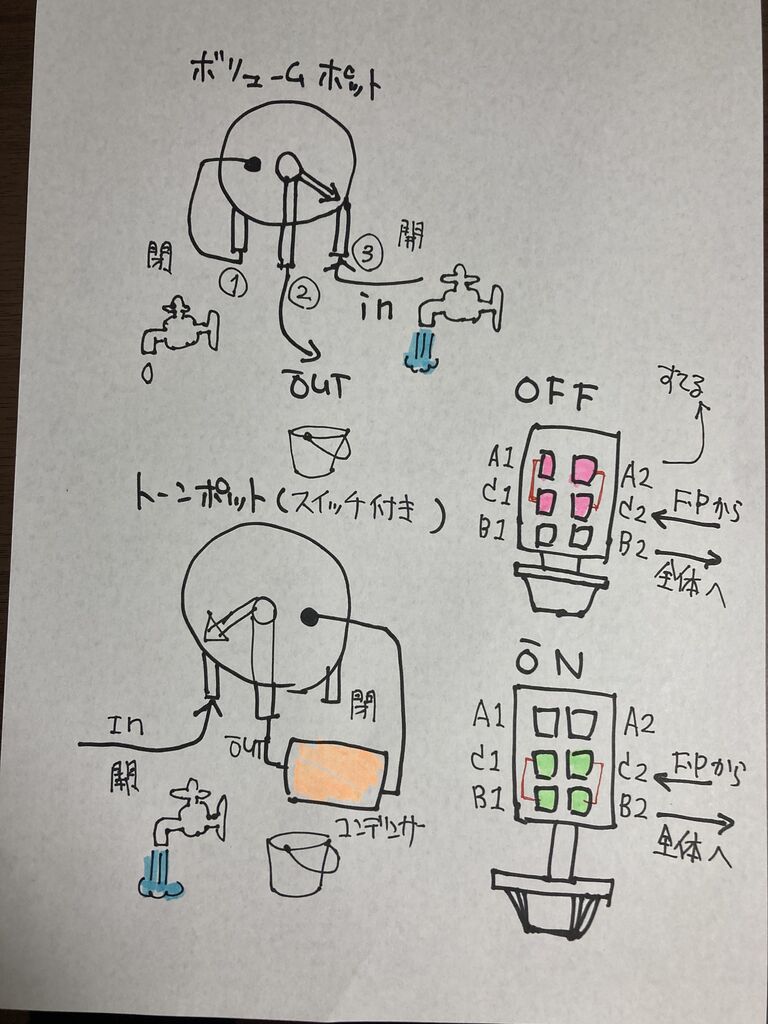 ボリューム ポット
閉
開
①
②
③
in
OUT
トーンポット(スイッチ付き)
In
開
OUT
閉
コンデンサー
OFF
すてる
A1
A2
C1
C2
F.Pから
B1
B2
全体へ
ON
A1
A2
C1
C2
F.Pから
B1
B2
全体へ